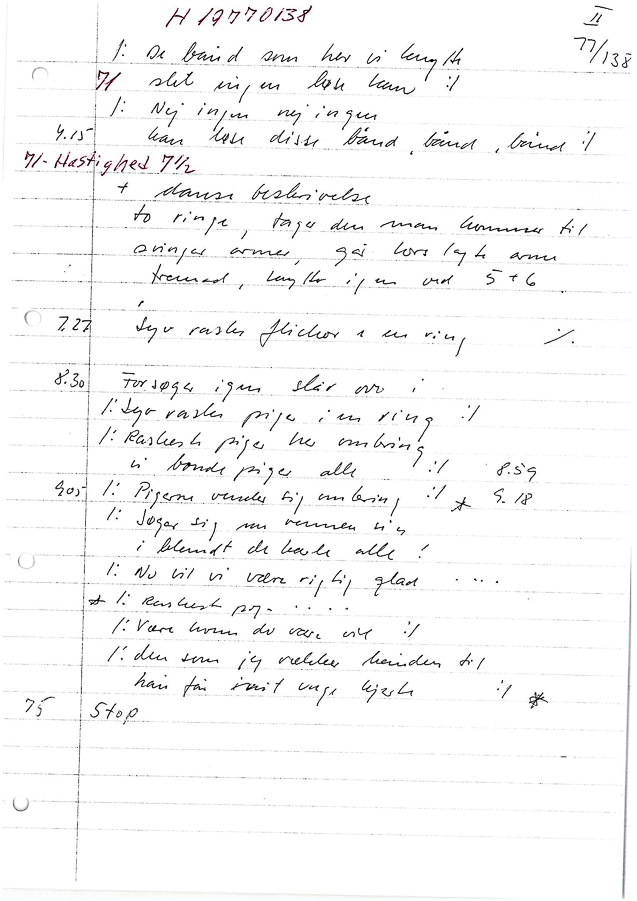 H 19770138
II
77/138
/: De bånd som her vi knytte
71 slet ingen løse kan :/
/: Nej ingen nej ingen
4.15 kan løse disse bånd, bånd, bånd :/
71- Hastighed 7 1/2
+ danse beskrivelse
to ringe, tager den man kommer til
svinger armer, går kors lagte arme
, knytte igen ved 5+6
7.27 Syv raske flickor i en ring %.
8.30 Forsøger igen slår over i
/: Syv raske piger i en ring :/
/: Raskeste piger her omkring
vi bonde piger alle :/ 8.59
9.05 /: Pigerne vender sig omkring :/ * 9.18
/: Søger sig en vennen sin
i blandt de kære alle !
/: Nu vil vi være rigtig glad ....
* /: Raskeste pig- ....
/: Være hvem du være vil :/
/: den som jeg rækker hånden til
han får mit unge hjerte :/ *
75 Stop